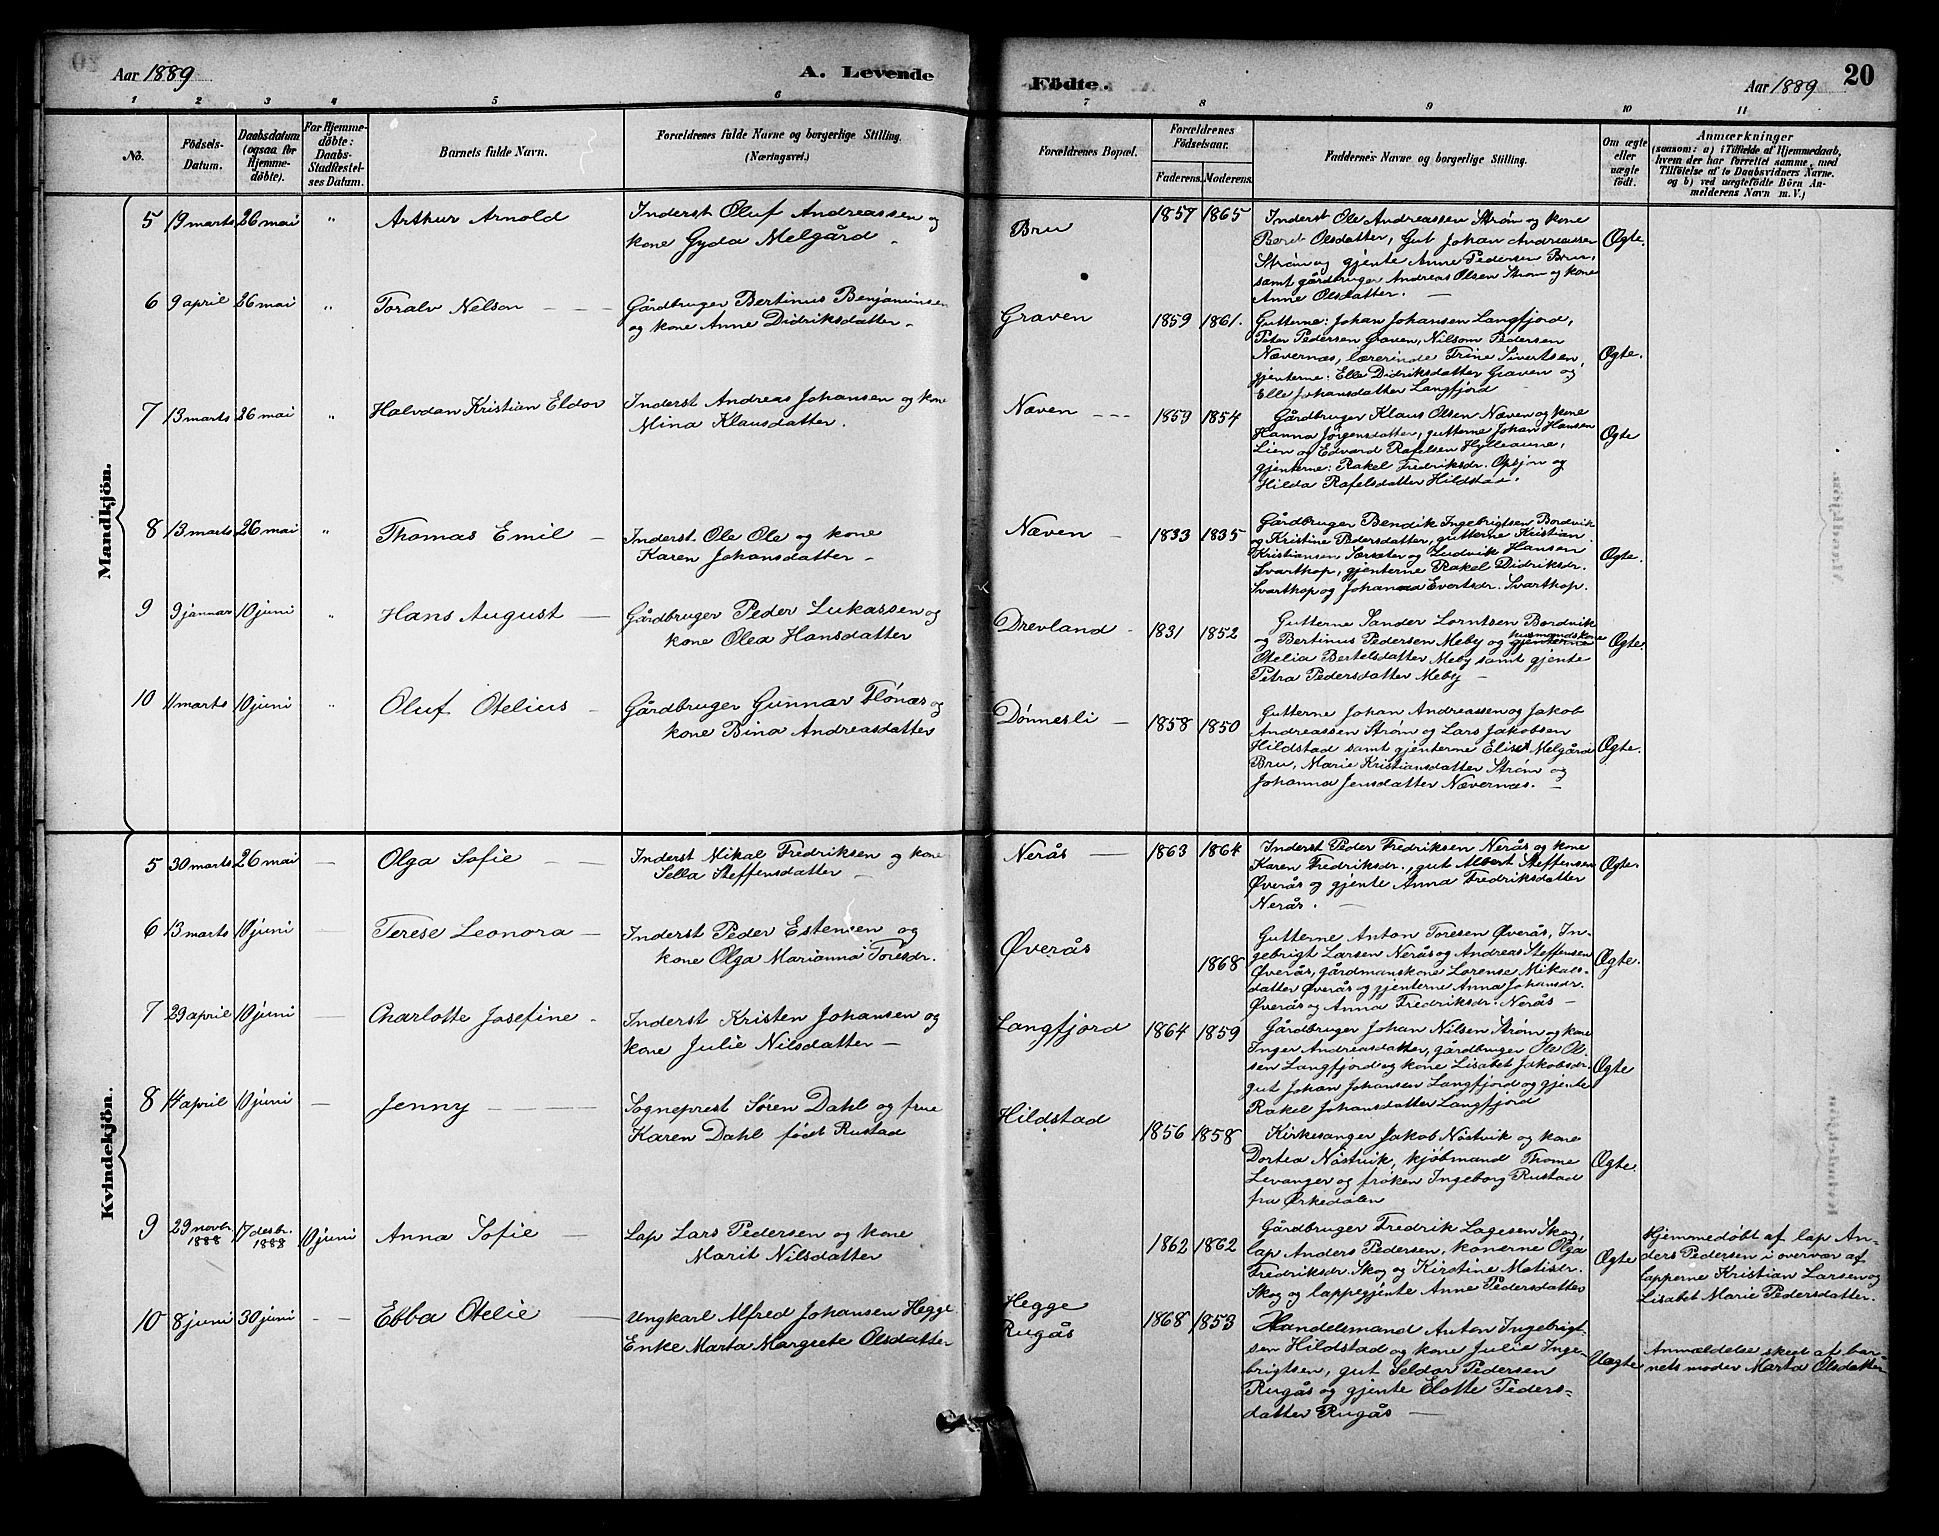 Aar 1889
A. Levende
Födte.
Aar 1889
20
1 2 3 4 5 6 7 8 9 10 11
No.
Födsels-
Datum.
Daabsdatum
(ogsaa for
Hjemme-
döbte).
For Hjemme-
döbte:
Daabs-
Stadfæstel-
ses Datum.
Barnets fulde Navn.
Forældrenes fulde Navne og borgerlige Stilling.
(Næringsvei.)
Forældrenes Bopæl.
Forældrenes
Födselsaar.
Faderens. Moderens.
Faddernes Navne og borgerlige Stilling.
Om ægte
eller
uægte
födt.
Anmærkninger
(saasom: a) i Tilfælde af Hjemmedaab,
hvem der har forrettet samme, med
Tilföielse af to Daabsvidners Navne.
og b) ved uægtefödte Börn An-
melderens Navn m. V.)
Mandkjön.
5 19 marts 26 mai " Arthur Arnold
Inderst Oluf Andreassen og
kone Gyda Melgård
Bru
1857 1865
Inderst Ole Andreassen Strøm og kone
Beret Olsdatter, Gut Johan Andreassen
Strøm og gjente Anne Pedersen Bru,
samt gårdbruger Andreas Olsen Strøm og kone
Anne Olsdatter.
Ægte.
6 9 april 26 mai " Toralv Nelson
Gårdbruger Bertinus Benjaminsen
og kone Anne Didriksdatter
Graven
1859 1861.
Gutterne: Johan Johansen Langfjord,
Peter Pedersen Graven, Nilsom Pedersen
Nævernæs, lærerinde Trine Sivertsen,
gjenterne: Elle Didriksdatter Graven og
Elle Johansdatter Langfjord
Ægte.
7 13 marts 26 mai " Halvdan Kristian Eldor
Inderst Andreas Johansen og kone
Mina Klausdatter.
Næven
1859 1854
Gårdbruger Klaus Olsen Næven og kone
Hanna Jørgensdatter, gutterne Johan Hansen
Lien og Edvard Rafelsen Hylleaune,
gjenterne: Rakel Fredriksdr. Opsjøn og
Hilda Rafelsdatter Hildstad.
Ægte
8 13 marts 26 mai " Thomas Emil
Inderst. Ole Ole og kone
Karen Johansdatter
Næven
1833 1835
Gårdbruger Bendik Ingebrigtsen Bordvik
og Kristine Pedersdatter, gutterne Kristian
Kristiansen Sørsæter og Ludvik Hansen
Svarthop, gjenterne Rakel Didriksdr.
Svarthop og Johanna Evertsdr. Svarthop.
Ægte.
9 9 januar 10 juni " Hans August
Gårdbruger Peder Lukassen og
kone Olea Hansdatter
Drevland
1831 1852
Gutterne Sander Lorntsen Bordvik
og Bertinus Pedersen Meby og gjenterne husmandskone
Otelia Bertelsdatter Meby samt gjente
Petra Pedersdatter Meby
Ægte.
10 11 marts 10 juni " Oluf Otelius
Gårdbruger Gunnar Flönæs og
kone Bina Andreasdatter
Dønnesli
1858 1850
Gutterne Johan Andreassen og Jakob
Andreassen Strøm og Lars Jakobsen
Hildstad samt gjenterne Elise Melgård
Bru, Marie Kristiansdatter Strøm og
Johanna Jensdatter Nævernæs.
Ægte.
Kvindekjön.
5 30 marts 26 mai Olga Sofie
Inderst Mikal Fredriksen og kone
Sella Steffensdatter
Nerås
1863 1864
Inderst Peder Fredriksen Nerås og kone
Karen Fredriksdr., gut Albert Steffensen
Øverås og gjente Anna Fredriksdatter
Nerås.
Ægte.
6 13 marts 10 juni Terese Leonora
Inderst Peder Estensen og
kone Olga Marianna Toresdr.
Øverås
1868
Gutterne Anton Toresen Øverås, In-
gebrigt Larsen Nerås og Andreas Steffensen
Øverås, gårdmanskone Lorense Mikals-
datter Øverås og gjenterne Anna Johansdr.
Øverås og Anna Fredriksdr. Nerås
Ægte.
7 29 april 10 juni Charlotte Josefine
Inderst Kristen Johansen og
kone Julie Nilsdatter
Langfjord
1864 1859
Gårdbruger Johan Nilsen Strøm og kone
Inger Andreasdatter, gårdbruger Ole Ol-
sen Langfjord og kone Lisabet Jakobsdr.
gut Johan Johansen Langfjord og gjente
Rakel Johansdatter Langfjord
Ægte
8 14 april 10 juni Jenny
Sogneprest Søren Dahl og frue
Karen Dahl født Rustad
Hildstad
1856 1858
Kirkesanger Jakob Nöstvik og kone
Dortea Nöstvik, kjøbmand Thome
Levanger og frøken Ingeborg Rustad
fra Ørkedalen
Ægte.
9 29 novbr. 1888 17 desbr. 1888 10 juni Anna Sofie
Lap Lars Pedersen og kone
Marit Nilsdatter
1862 1862
Gårdbruger Fredrik Lagesen Skog,
lap Anders Pedersen, konerne Olga
Fredriksdr. Skog og Kirstine Matisdr.
Skog og lappegjente Anne Pedersdatter
Ægte
Hjemmedøbt af lap An-
ders Pedersen i overvær af
lapperne Kristian Larsen og
Lisabet Marie Pedersdatter.
10 8 juni 30 juni Ebba Otelie
Ungkarl Alfred Johansen Hegge
Enke Marta Margrete Olsdatter
Hegge
Rugås
1868 1853
Handelsmand Anton Ingebrigt-
sen Hildstad og kone Julie Inge-
brigtsen, gut Seldor Pedersen
Rugås og gjente Elotte Peders-
datter Rugås
Uægte
Anmældelse skeet af bar-
nets moder Marta Olsdatter